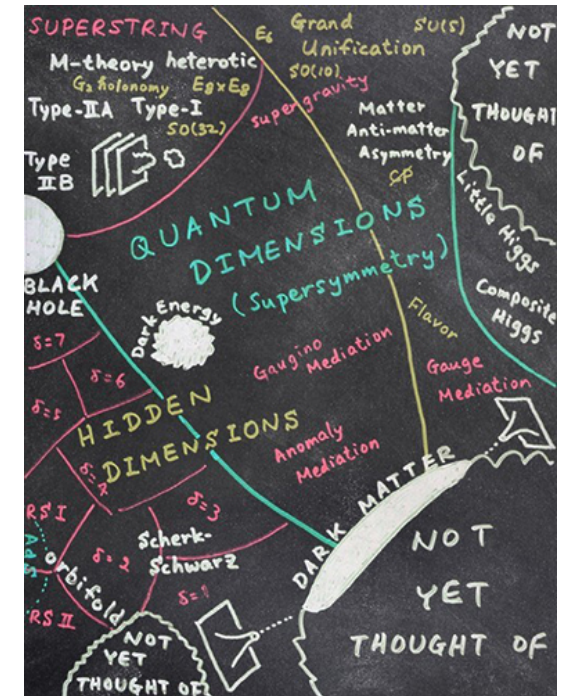 SUPERSTRING
M-theory heterotic
G₂ holonomy E8×E8
Type-IIA Type-I
SO(32)
Type
IIB
E₆ Grand
Unification
SU(5)
SO(10)
supergravity
Matter
Anti-matter
Asymmetry
CP
NOT
YET
THOUGHT
OF
Little Higgs
Composite
Higgs
QUANTUM
DIMENSIONS
(Supersymmetry)
BLACK
HOLE
Dark Energy
Flavor
Gaugino
Mediation
Gauge
Mediation
δ=7
δ=6
δ=5
HIDDEN
DIMENSIONS
δ=4
δ=3
Anomaly
Mediation
DARK MATTER
RS I
AdS
RS II
orbifold
δ=2
Scherk-
Schwarz
δ=1
NOT
YET
THOUGHT OF
NOT
YET
THOUGHT OF